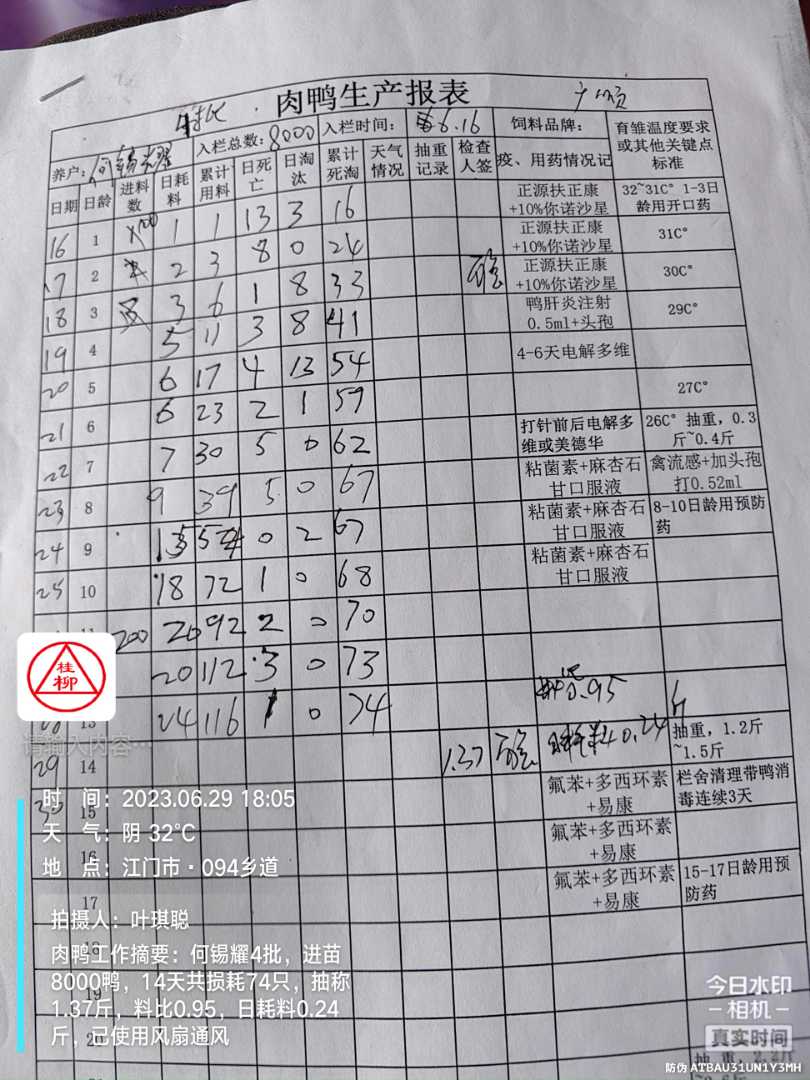 4批 肉鸭生产报表 广顺
养户: 何锡耀 入栏总数: 8000 入栏时间: 6.16 饲料品牌: 育雏温度要求或其他关键点标准
日期 日龄 进料数 日耗料 累计用料 日死亡 日淘汰 累计死淘 天气情况 抽重记录 检查人签 疫、用药情况记
16 1 1 1 13 3 16 正源扶正康+10%你诺沙星 32~31C° 1-3日龄用开口药
17 2 2 3 8 0 24 正源扶正康+10%你诺沙星 31C°
18 3 3 6 1 8 33 正源扶正康+10%你诺沙星 30C°
19 4 5 11 3 8 41 鸭肝炎注射0.5ml+头孢 29C°
20 5 6 17 4 13 54 4-6天电解多维
21 6 6 23 2 1 59 27C°
22 7 7 30 5 0 62 打针前后电解多维或美德华 26C° 抽重，0.3斤~0.4斤
23 8 9 39 5 0 67 粘菌素+麻杏石甘口服液 禽流感+加头孢打0.52ml
24 9 15 54 0 2 67 粘菌素+麻杏石甘口服液 8-10日龄用预防药
25 10 18 72 1 0 68 粘菌素+麻杏石甘口服液
200 20 92 2 0 70
20 112 3 0 73
13 24 116 1 0 74 0.95
29 14 1.37 0.24斤 抽重，1.2斤~1.5斤
30 15 氟苯+多西环素+易康 栏舍清理带鸭消毒连续3天
氟苯+多西环素+易康
17 氟苯+多西环素+易康 15-17日龄用预防药
18
19
20
抽重，2.2斤
桂柳
请输入内容…
时 间：2023.06.29 18:05
天 气：阴 32℃
地 点：江门市·094乡道
拍摄人：叶琪聪
肉鸭工作摘要：何锡耀4批，进苗
8000鸭，14天共损耗74只，抽称
1.37斤，料比0.95，日耗料0.24
斤，已使用风扇通风
今日水印
-相机-
真实时间
防伪 ATBAU31UN1Y3MH